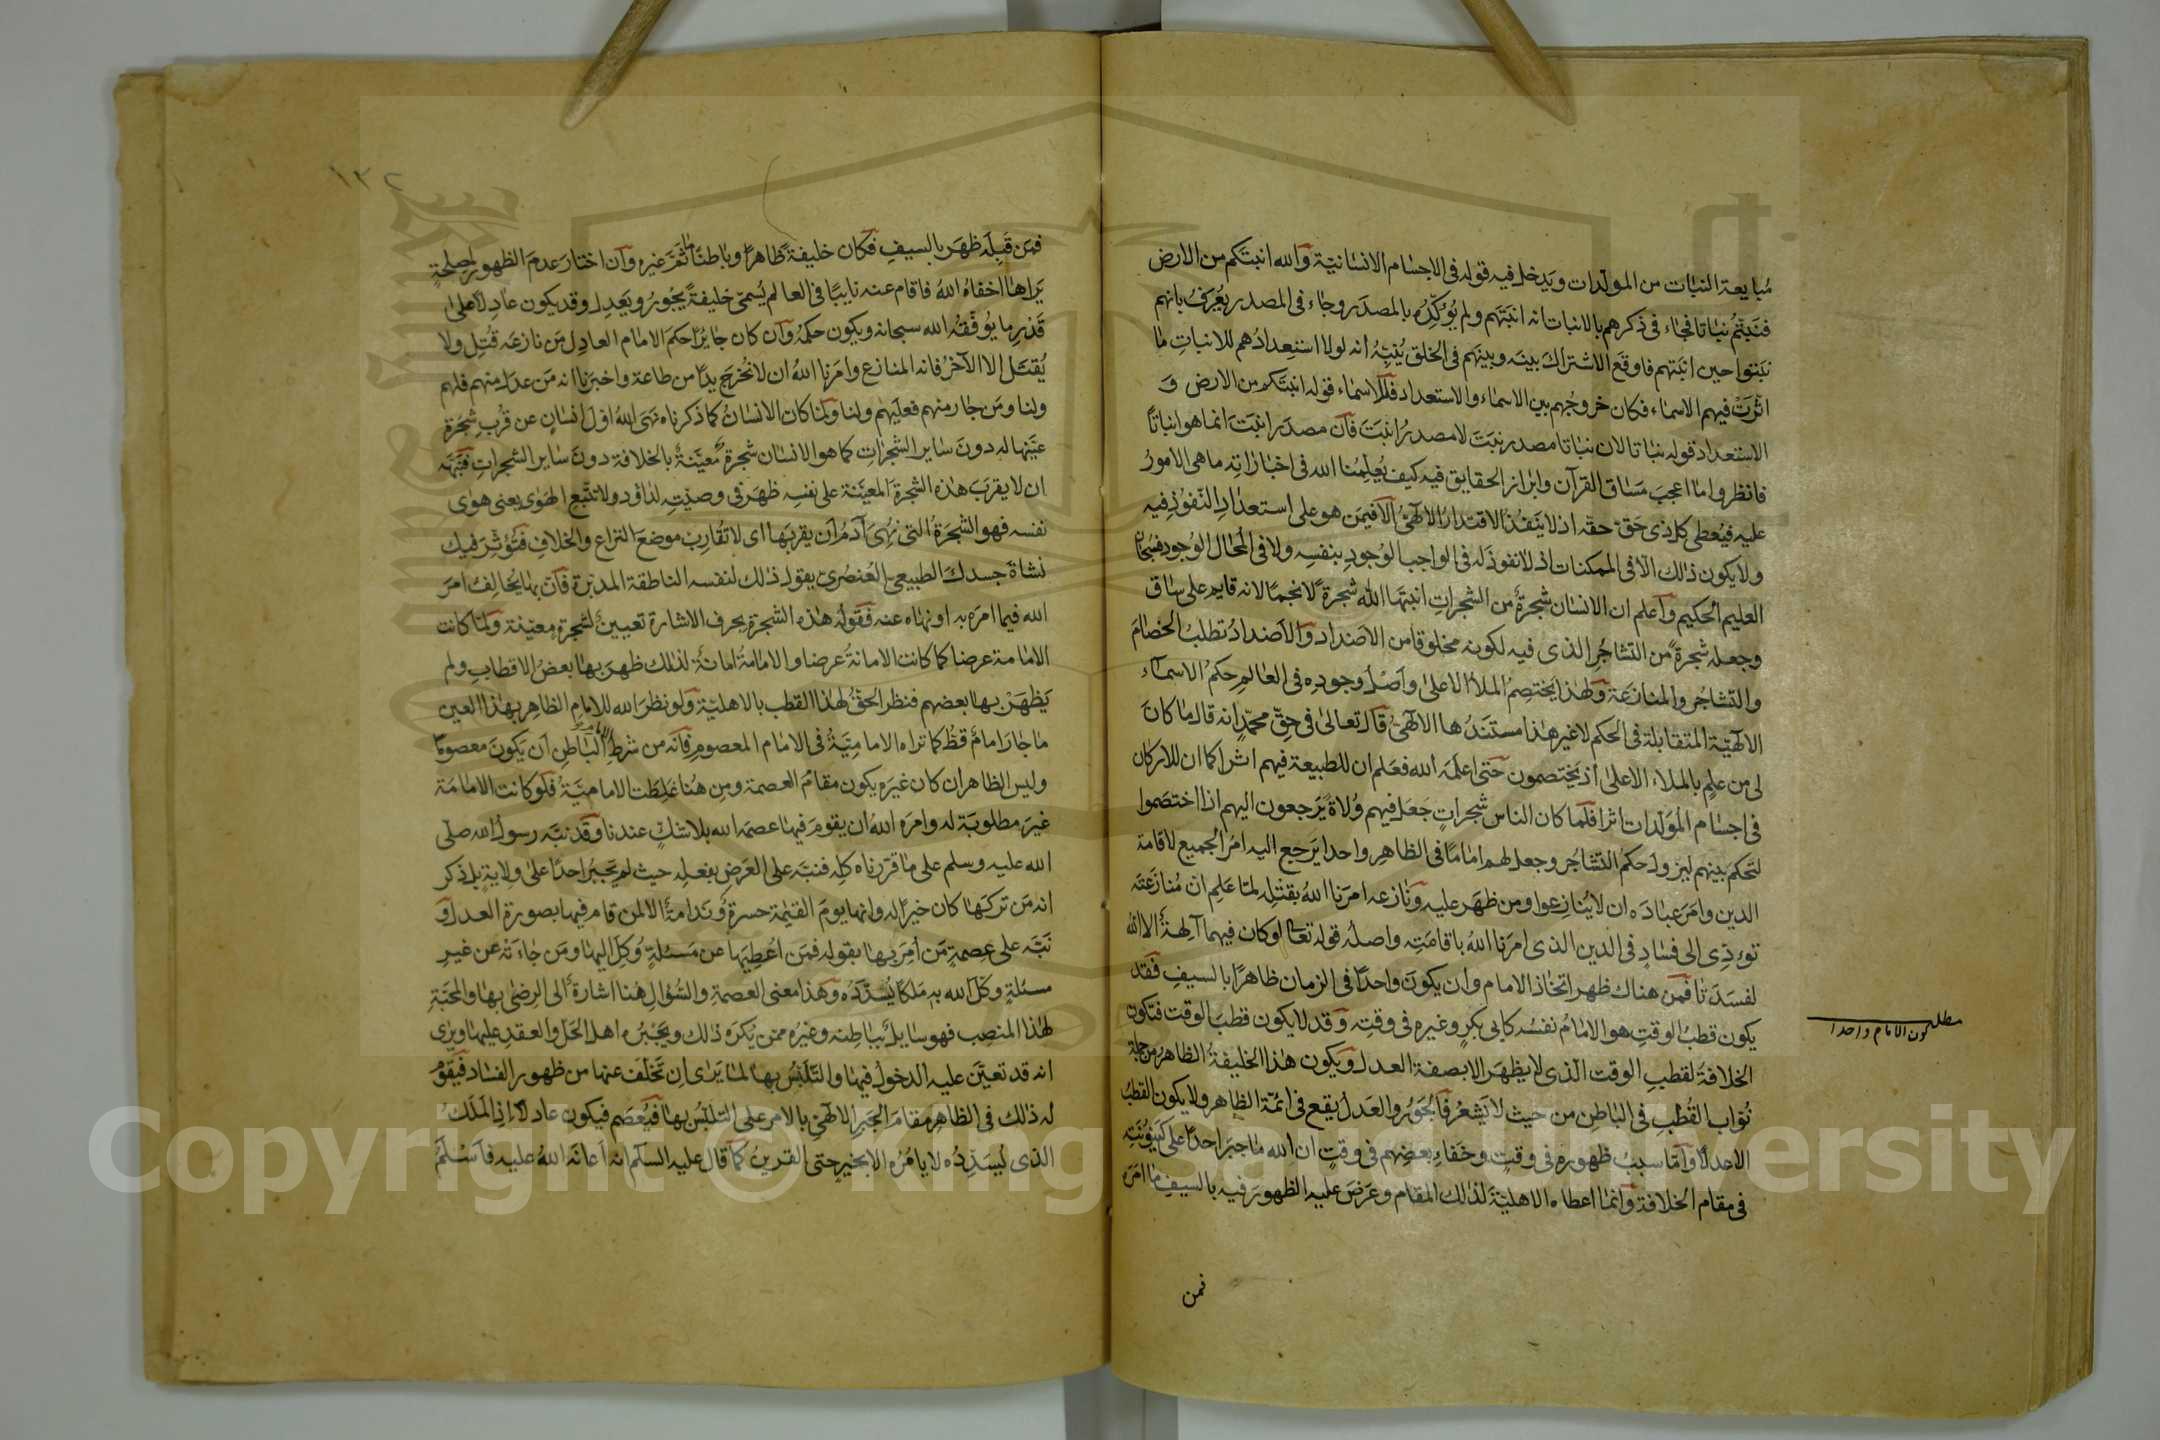 مُبايعة النبات من المولّدات ويدخل فيه قوله في الاجسام الانسانيّة والله انبتكم من الارض
فنَبَتّم نباتا فجاء في ذكرهم بالانبات انه انبتهم ولم يؤكّده بالمصدر وجاء في المصدر يعرّف بانهم
نبتوا حين انبتهم فاوقع الاشتراك بينه وبينهم في الخلق يُنبّه انه لولا استعدادهم للانبات ما
اثرت فيهم الاسماء فكان خروجهم بين الاسماء والاستعداد فللاسماء قوله انبتكم من الارض و
الاستعداد قوله نباتا لان نباتا مصدر نبت لا مصدر انبت فان مصدر انبت انما هو انباتاً
فانظروا ما اعجب مساق القرآن وابراز الحقايق فيه كيف يُعلّمنا الله في اخباراته ما هى الامور
عليه فيُعطى كل ذى حقّ حقّه اذ لا ينفذ الاقتدار الالٓهىّ الا فيمن هو على استعداد النفوذ فيه
ولا يكون ذلك الا في الممكنات اذ لا نفوذ له في الواجب الوجود بنفسه ولا في المحال الوجود فسبحان
العليم الحكيم واعلم ان الانسان شجرة من الشجرات انبتها الله شجرة لا نجما لانه قايم على ساق
وجعله شجرة من التشاجر الذى فيه لكونه مخلوقا من الاضداد والاضداد تطلب الخصام
والتشاجر والمنازعة ولهذا يختصم الملأ الاعلى واصل وجوده في العالم حكم الاسماء
الالٓهيّة المتقابلة في الحكم لا غير هذا مستندُها الالٓهىّ قال تعالى في حقّ محمد انه قال ما كان
لى من علم بالملاء الاعلى اذ يختصمون حتى اعلمه الله فعلم ان للطبيعة فيهم اثرا كما ان للاركان
في اجسام المولّدات اثرا فلما كان الناس شجرات جعل فيهم وُلاة يَرجعون اليهم اذا اختصموا
لتحكم بينهم ليزول حكم التشاجر وجعل لهم اماما في الظاهر واحدا يرجع اليه امر الجميع لاقامة
الدين وامر عباده ان لا ينازعوا ومن ظهر عليه ونازعه امرنا الله بقتله لما علم ان منازعته
تؤدّى الى فساد في الدين الذى امرنا الله باقامته واصله قوله تعالى لو كان فيهما آلهة الا الله
لفسدتا فمن هناك ظهر اتخاذ الامام وان يكون واحدا في الزمان ظاهرا بالسيف فقد
يكون قطب الوقت هو الامام نفسه كابى بكر وغيره في وقته وقد لا يكون قطب الوقت فتكون
الخلافة لقطب الوقت الذى لا يظهر الا بصفة العدل ويكون هذا الخليفة الظاهر من جملة
نُوّاب القطب في الباطن من حيث لا يشعر فالجور والعدل يقع في ائمّة الظاهر ولا يكون القطب
الا عدلا واما سبب ظهوره في وقت وخفاء بعضهم في وقت ان الله ما جبر احدا على كينونته
في مقام الخلافة وانما اعطاه الاهليّة لذلك المقام وعرض عليه الظهور فيه بالسيف ما امره
فمن
مطلب
كون الامام واحدا
١٣٢
فمن قبله ظهر بالسيف فكان خليفة ظاهرا وباطنا ما ثمّ غيره وان اختار عدم الظهور لمصلحة
يراها اخفاه الله فاقام عنه نايبا في العالم يُسمّى خليفة يجور ويعدل وقد يكون عادلا على
قدر ما يوفّقه الله سبحانه ويكون حكمه وان كان جايرا حكم الامام العادل من نازعه قُتل ولا
يُقتل الا الآخر فانه المنازع وامرنا الله ان لا نخرج يدا من طاعة واخبرنا انه من عدل منهم فلهم
ولنا ومن جار منهم فعليهم ولنا ولما كان الانسان كما ذكرناه نهى الله اول انسان عن قرب شجرة
عيّنها له دون ساير الشجرات كما هو الانسان شجرة معيّنة بالخلافة دون ساير الشجرات فنبّهه
ان لا يقرب هذه الشجرة المعيّنة على نفسه ظهر في وصيّته لداؤد ولا تتّبع الهوى يعنى هوى
نفسه فهو الشجرة التى نُهى آدم ان يقربها اى لا تقارب موضع النزاع والخلاف فتؤثر فيك
نشاة جسدك الطبيعى العنصرىّ يقول ذلك لنفسه الناطقة المدبّرة فان بها يخالف امر
الله فيما امره به او نهاه عنه فقوله هذه الشجرة بحرف الاشارة تعيين لشجرة معيّنة ولما كانت
الامامة عرضا كما كانت الامانة عرضا والامامة امانة لذلك ظهر بها بعض الاقطاب ولم
يظهر بها بعضهم فنظر الحقّ لهذا القطب بالاهليّة ولو نظر الله للامام الظاهر بهذا العين
ما جار امام قطّ كما تراه الاماميّة في الامام المعصوم فانه من شرط الباطن ان يكون معصوما
وليس الظاهر ان كان غيره يكون مقام العصمة ومن هنا غلطت الاماميّة فلو كانت الامامة
غير مطلوبة له وامره الله ان يقوم فيها عصمه الله بلا شكّ عندنا وقد نبّه رسول الله صلى
الله عليه وسلم على ما قررناه كله فنبّه على العرض بفعله حيث لم يجبر احدا على ولاية بل ذكر
انه من تركها كان خيرا له وانها يوم القيمة حسرة وندامة الا لمن قام فيها بصورة العدل و
نبّه على عصمة من اُمر بها بقوله فمن اُعطيها عن مسئلة وُكل اليها ومن جاءته عن غير
مسئلة وكّل الله به ملكا يسدّده وهذا معنى العصمة والسؤال هنا اشارة الى الرضى بها والمحبّة
لهذا المنصب فهو سايل بباطنه وغيره ممن يكره ذلك ويجبره اهل الحل والعقد عليها ويرى
انه قد تعيّن عليه الدخول فيها والتلبّس بها لما يرى ان تخلّف عنها من ظهور الفساد فيقوم
له ذلك في الظاهر مقام الجبر الالٓهىّ بالامر على التلبّس بها فيُعصم فيكون عادلا اذ الملك
الذى يسدّده لا يامره الا بخير حتى القرين كما قال عليه السلم انه اعانه الله عليه فاسلم